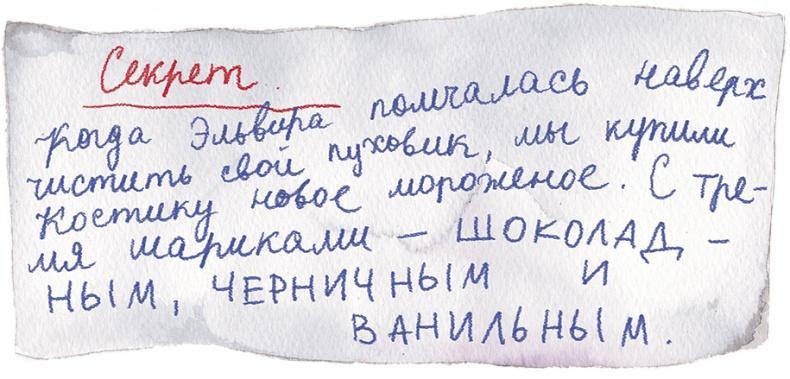 Секрет.
Когда Эльвира помчалась наверх
чистить свой пуховик, мы купили
Костику новое мороженое. С тре-
мя шариками – ШОКОЛАД-
НЫМ, ЧЕРНИЧНЫМ И
ВАНИЛЬНЫМ.